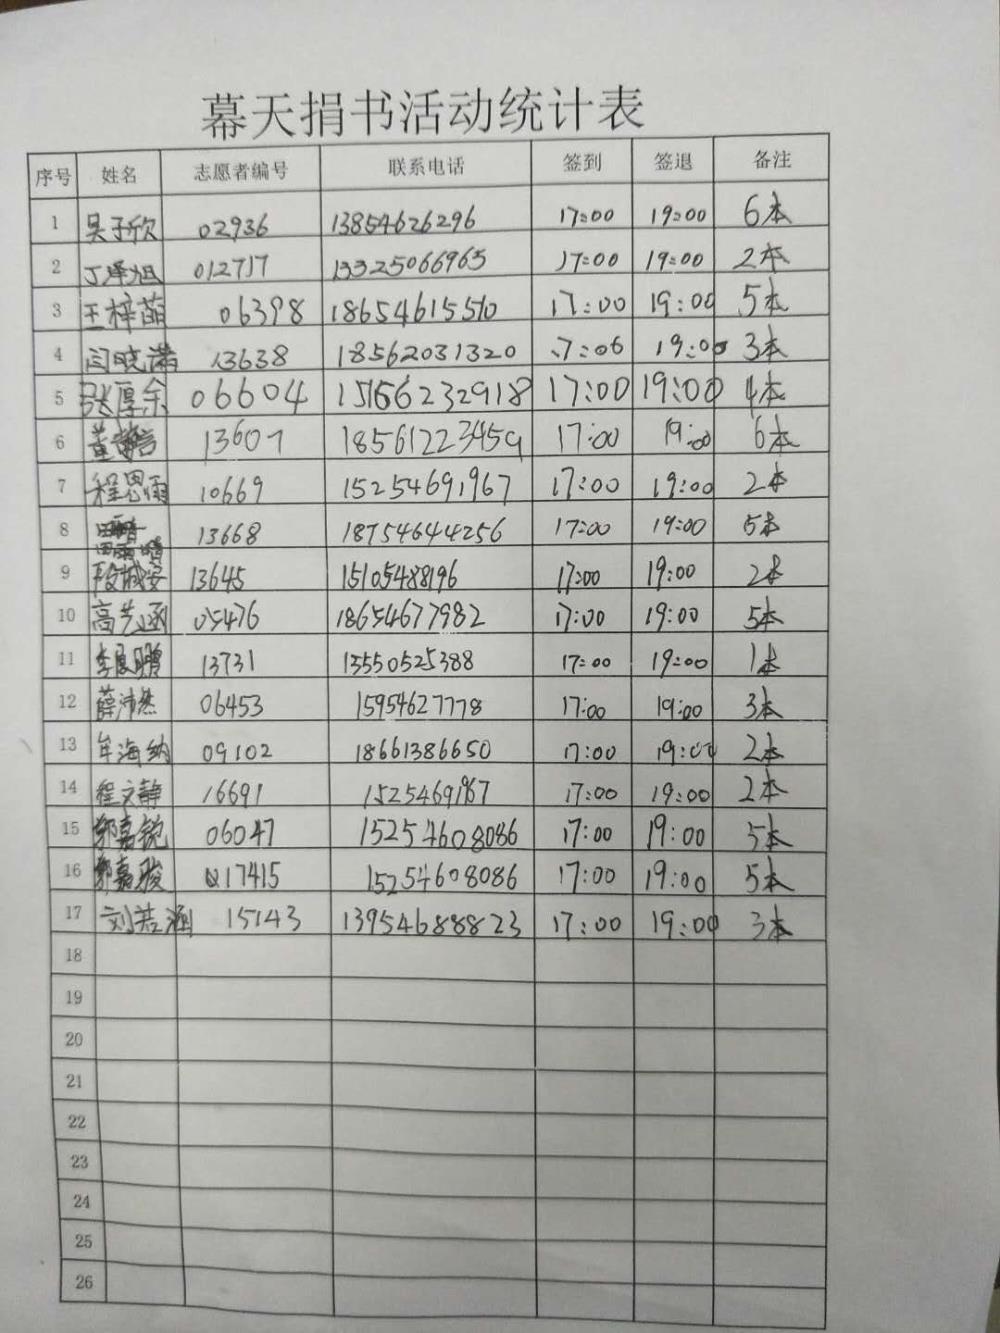 幕天捐书活动统计表
序号 姓名 志愿者编号 联系电话 签到 签退 备注
1 吴子欣 02936 13854626296 17:00 19:00 6本
2 丁泽旭 012717 13325066965 17:00 19:00 2本
3 王梓萌 06398 18654615510 17:00 19:00 5本
4 闫晓满 13638 18562031320 17:06 19:00 3本
5 张厚余 06604 15166232918 17:00 19:00 4本
6 13607 18561223459 17:00 19:00 6本
7 程思雨 10669 15254691967 17:00 19:00 2本
8 田雨晴 13668 18754644256 17:00 19:00 5本
9 13645 15105488196 17:00 19:00 2本
10 高艺涵 05476 18654677982 17:00 19:00 5本
11 李展鹏 13731 13550525388 17:00 19:00 1本
12 薛沛然 06453 15954627778 17:00 19:00 3本
13 牟海纳 09102 18661386650 17:00 19:00 2本
14 程文静 16691 17:00 19:00 2本
15 郭嘉锐 06047 15254608086 17:00 19:00 5本
16 郭嘉骏 017415 15254608086 17:00 19:00 5本
17 刘若涵 15143 13954688823 17:00 19:00 3本
18
19
20
21
22
23
24
25
26